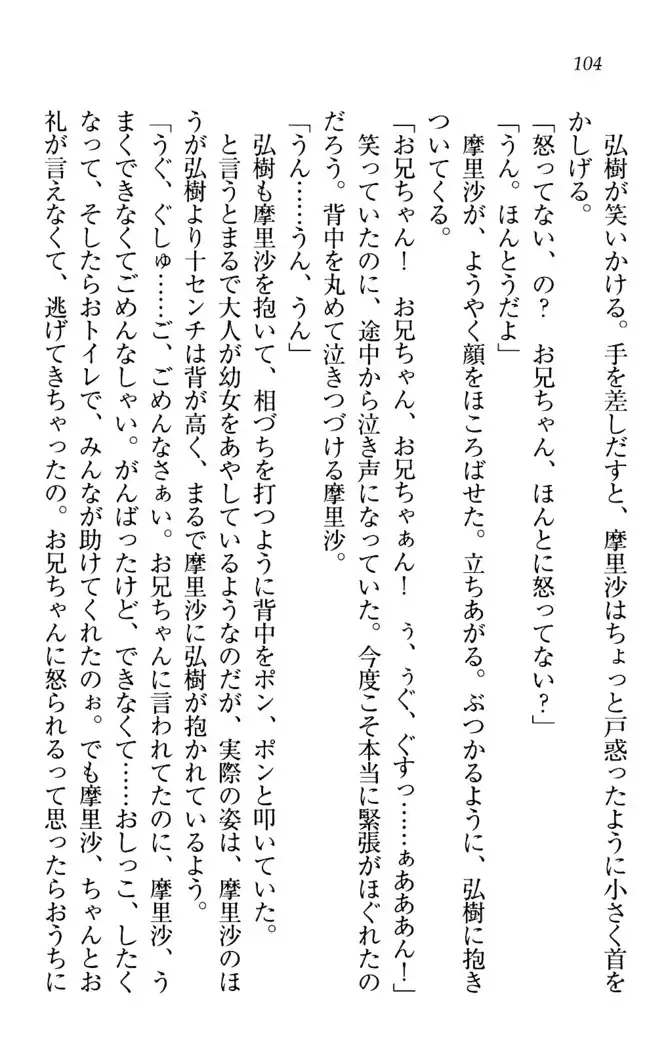 104
　弘樹が笑いかける。手を差しだすと、摩里沙はちょっと戸惑ったように小さく首を
かしげる。
「怒ってない、の？　お兄ちゃん、ほんとに怒ってない？」
「うん。ほんとうだよ」
　摩里沙が、ようやく顔をほころばせた。立ちあがる。ぶつかるように、弘樹に抱き
ついてくる。
「お兄ちゃん！　お兄ちゃん、お兄ちゃぁん！　ぅ、うぐ、ぐすっ……ぁあああん！」
　笑っていたのに、途中から泣き声になっていた。今度こそ本当に緊張がほぐれたの
だろう。背中を丸めて泣きつづける摩里沙。
「うん……うん、うん」
　弘樹も摩里沙を抱いて、相づちを打つように背中をポン、ポンと叩いていた。
　と言うとまるで大人が幼女をあやしているようなのだが、実際の姿は、摩里沙のほ
うが弘樹より十センチは背が高く、まるで摩里沙に弘樹が抱かれているよう。
「うぐ、ぐしゅ……ご、ごめんなさぁい。お兄ちゃんに言われてたのに、摩里沙、う
まくできなくてごめんなしゃい。がんばったけど、できなくて……おしっこ、したく
なって、そしたらおトイレで、みんなが助けてくれたのぉ。でも摩里沙、ちゃんとお
礼が言えなくて、逃げてきちゃったの。お兄ちゃんに怒られるって思ったらおうちに